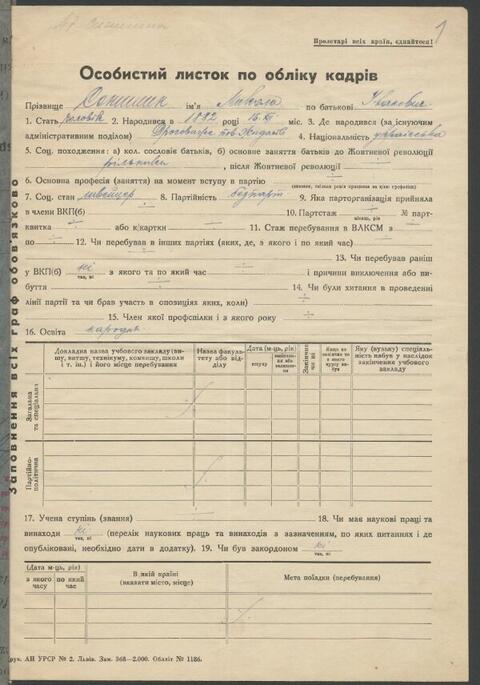 1
Пролетарі всіх країн, єднайтеся!
Особистий листок по обліку кадрів
Прізвище ім'я Микола по батькові Іванович
1. Стать чоловік 2. Народився в 1892 році 15 XI міс. 3. Де народився (за існуючим
адміністративним поділом) 4. Національність українська
5. Соц. походження: а) кол. сословіє батьків, б) основне заняття батьків до Жовтневої революції
рільники, після Жовтневої революції
6. Основна професія (заняття) на момент вступу в партію
7. Соц. стан швейцер 8. Партійність безпарт 9. Яка парторганізація прийняла
в члени ВКП(б) 10. Партстаж № парт-
місяць, рік
квитка або к/картки 11. Стаж перебування в ВЛКСМ з
по 12. Чи перебував в інших партіях (яких, де, з якого і по який час)
13. Чи перебував раніш
у ВКП(б) ні з якого та по який час і причини виключення або ви-
так, ні
буття 14. Чи були хитання в проведенні
лінії партії та чи брав участь в опозиціях яких, коли)
15. Член якої профспілки і з якого року
16. Освіта народня
Докладна назва учбового закладу (ви-
шу, втишу, технікуму, комвишу, школи
і т. ін.) і його місце перебування
Назва факуль-
тету або від-
ділу
Дата (м-ць, рік)
вступу
Закінчив
чи ні
Яку (вузьку) спеціаль-
ність набув у наслідок
закінчення учбового
закладу
Загальна
та спеціальна
Партійно-
політична
17. Учена ступінь (звання) 18. Чи має наукові праці та
винаходи ні (перелік наукових праць та винаходів з зазначенням, по яких питаннях і де
так, ні
опубліковані, необхідно дати в додатку). 19. Чи був закордоном ні
так, ні
(Дата м-ць, рік)
з якого часу
по який час
В якій країні
(вказати місто, місце)
Мета поїздки (перебування)
Друк. АН УРСР № 2. Львів. Зам. 368—2.000. Обліт № 1186.
Заповнення всіх граф обов'язково